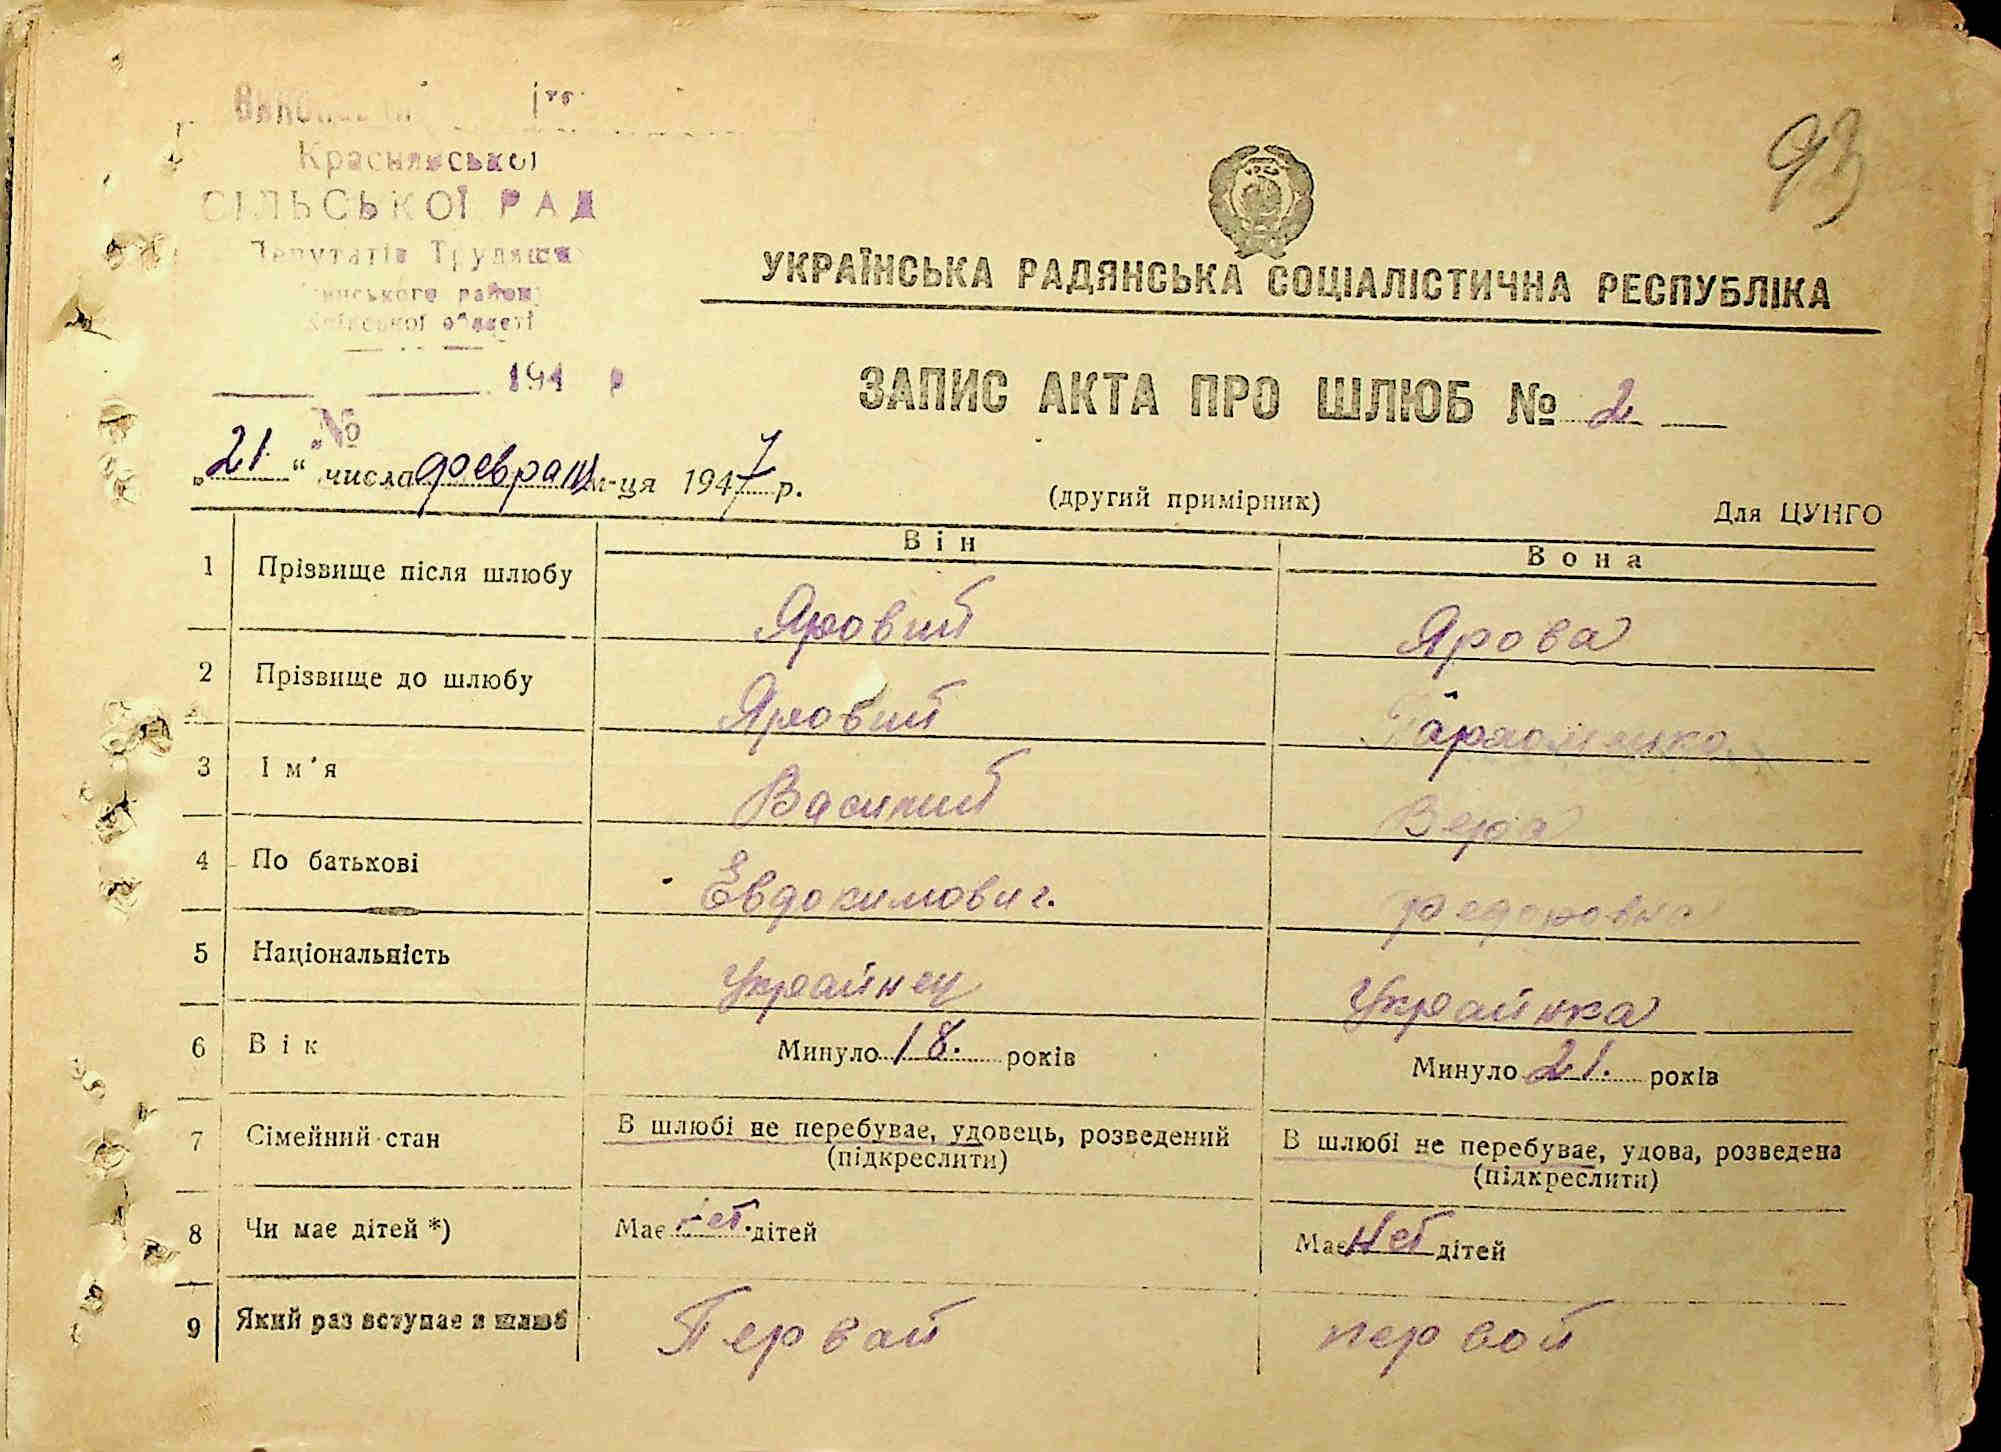 93
Краснянської
СІЛЬСЬКОЇ РАД
Депутатів Трудящи
району
області
194 р
№
УКРАЇНСЬКА РАДЯНСЬКА СОЦІАЛІСТИЧНА РЕСПУБЛІКА
ЗАПИС АКТА ПРО ШЛЮБ № 2
„21“ числа февраля м-ця 1947 р.
(другий примірник)
Для ЦУНГО
Він Вона
1 Прізвище після шлюбу Яровий Ярова
2 Прізвище до шлюбу Яровий
3 Ім'я Василий Вера
4 По батькові Евдокимович. Федоровна
5 Національність Украйнец Украйнка
6 Вік Минуло 18. років Минуло 21. років
7 Сімейний стан В шлюбі не перебуває, удовець, розведений В шлюбі не перебуває, удова, розведена
(підкреслити) (підкреслити)
8 Чи має дітей *) Має нет. дітей Має нет дітей
9 Який раз вступає в шлюб Первай первой